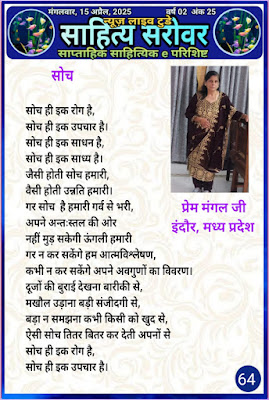 मंगलवार, 15 अप्रैल, 2025 वर्ष 02 अंक 25
न्यूज़ लाइव टुडे
साहित्य सरोवर
साप्ताहिक साहित्यिक e परिशिष्ट
सोच
सोच ही इक रोग है,
सोच ही इक उपचार है।
सोच ही इक साधन है,
सोच ही इक साध्य है।
जैसी होती सोच हमारी,
वैसी होती उन्नति हमारी।
गर सोच है हमारी गर्व से भरी,
अपने अन्तःस्तल की ओर
नहीं मुड़ सकेगी ऊंगली हमारी
गर न कर सकेंगे हम आत्मविश्लेषण,
कभी न कर सकेंगे अपने अवगुणों का विवरण।
दूजों की बुराई देखना बारीकी से,
मखौल उड़ाना बड़ी संजीदगी से,
बड़ा न समझना कभी किसी को खुद से,
ऐसी सोच तितर बितर कर देती अपनों से
सोच ही इक रोग है,
सोच ही इक उपचार है।
प्रेम मंगल जी
इंदौर, मध्य प्रदेश
64